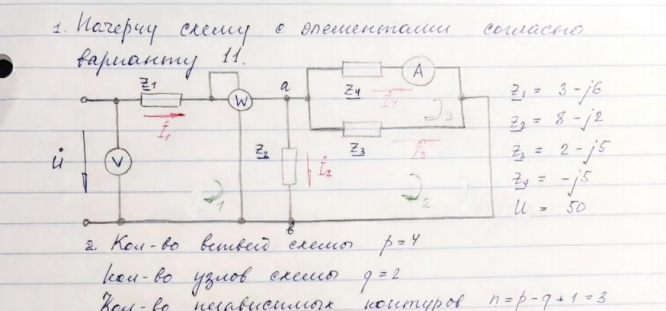 1. Начерчу схему с элементами согласно
варианту 11.
Z1 W a Z4 A I4 3
I1 Z2 Z3 I3
U V I2 1 2
в
Z1 = 3-j6
Z2 = 8-j2
Z3 = 2-j5
Z4 = -j5
U = 50
2. Кол-во ветвей схемы p=4
Кол-во узлов схемы q=2
Кол-во независимых контуров n=p-q+1=3